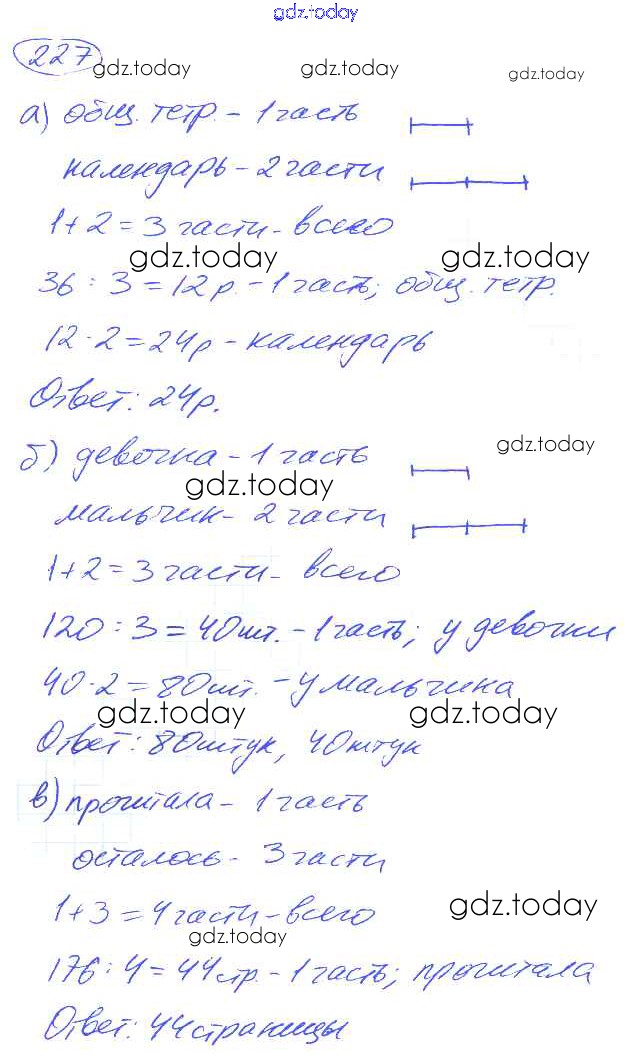 gdz.today
227
gdz.today gdz.today gdz.today
а) общ. тетр. - 1 часть
календарь - 2 части
1 + 2 = 3 части - всего
gdz.today gdz.today
36 : 3 = 12 р. - 1 часть; общ. тетр.
12 · 2 = 24 р - календарь
Ответ: 24 р.
б) девочка - 1 часть
gdz.today
gdz.today
мальчик - 2 части
1 + 2 = 3 части - всего
120 : 3 = 40 шт. - 1 часть; у девочки
40 · 2 = 80 шт. - у мальчика
gdz.today gdz.today
Ответ: 80 штук, 40 штук
в) прочитала - 1 часть
осталось - 3 части
1 + 3 = 4 части - всего
gdz.today
gdz.today
176 : 4 = 44 стр. - 1 часть; прочитала
Ответ: 44 страницы